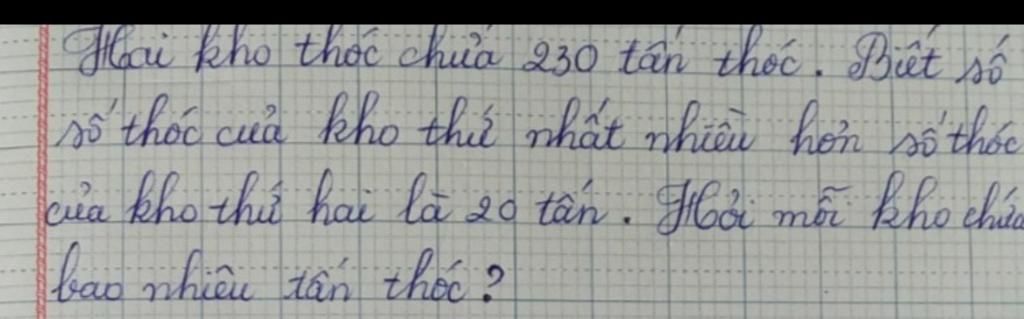 Hai kho thóc chứa 230 tấn thóc. Biết số
số thóc của kho thứ nhất nhiều hơn số thóc
của kho thứ hai là 20 tấn. Hỏi mỗi kho chứa
bao nhiêu tấn thóc?